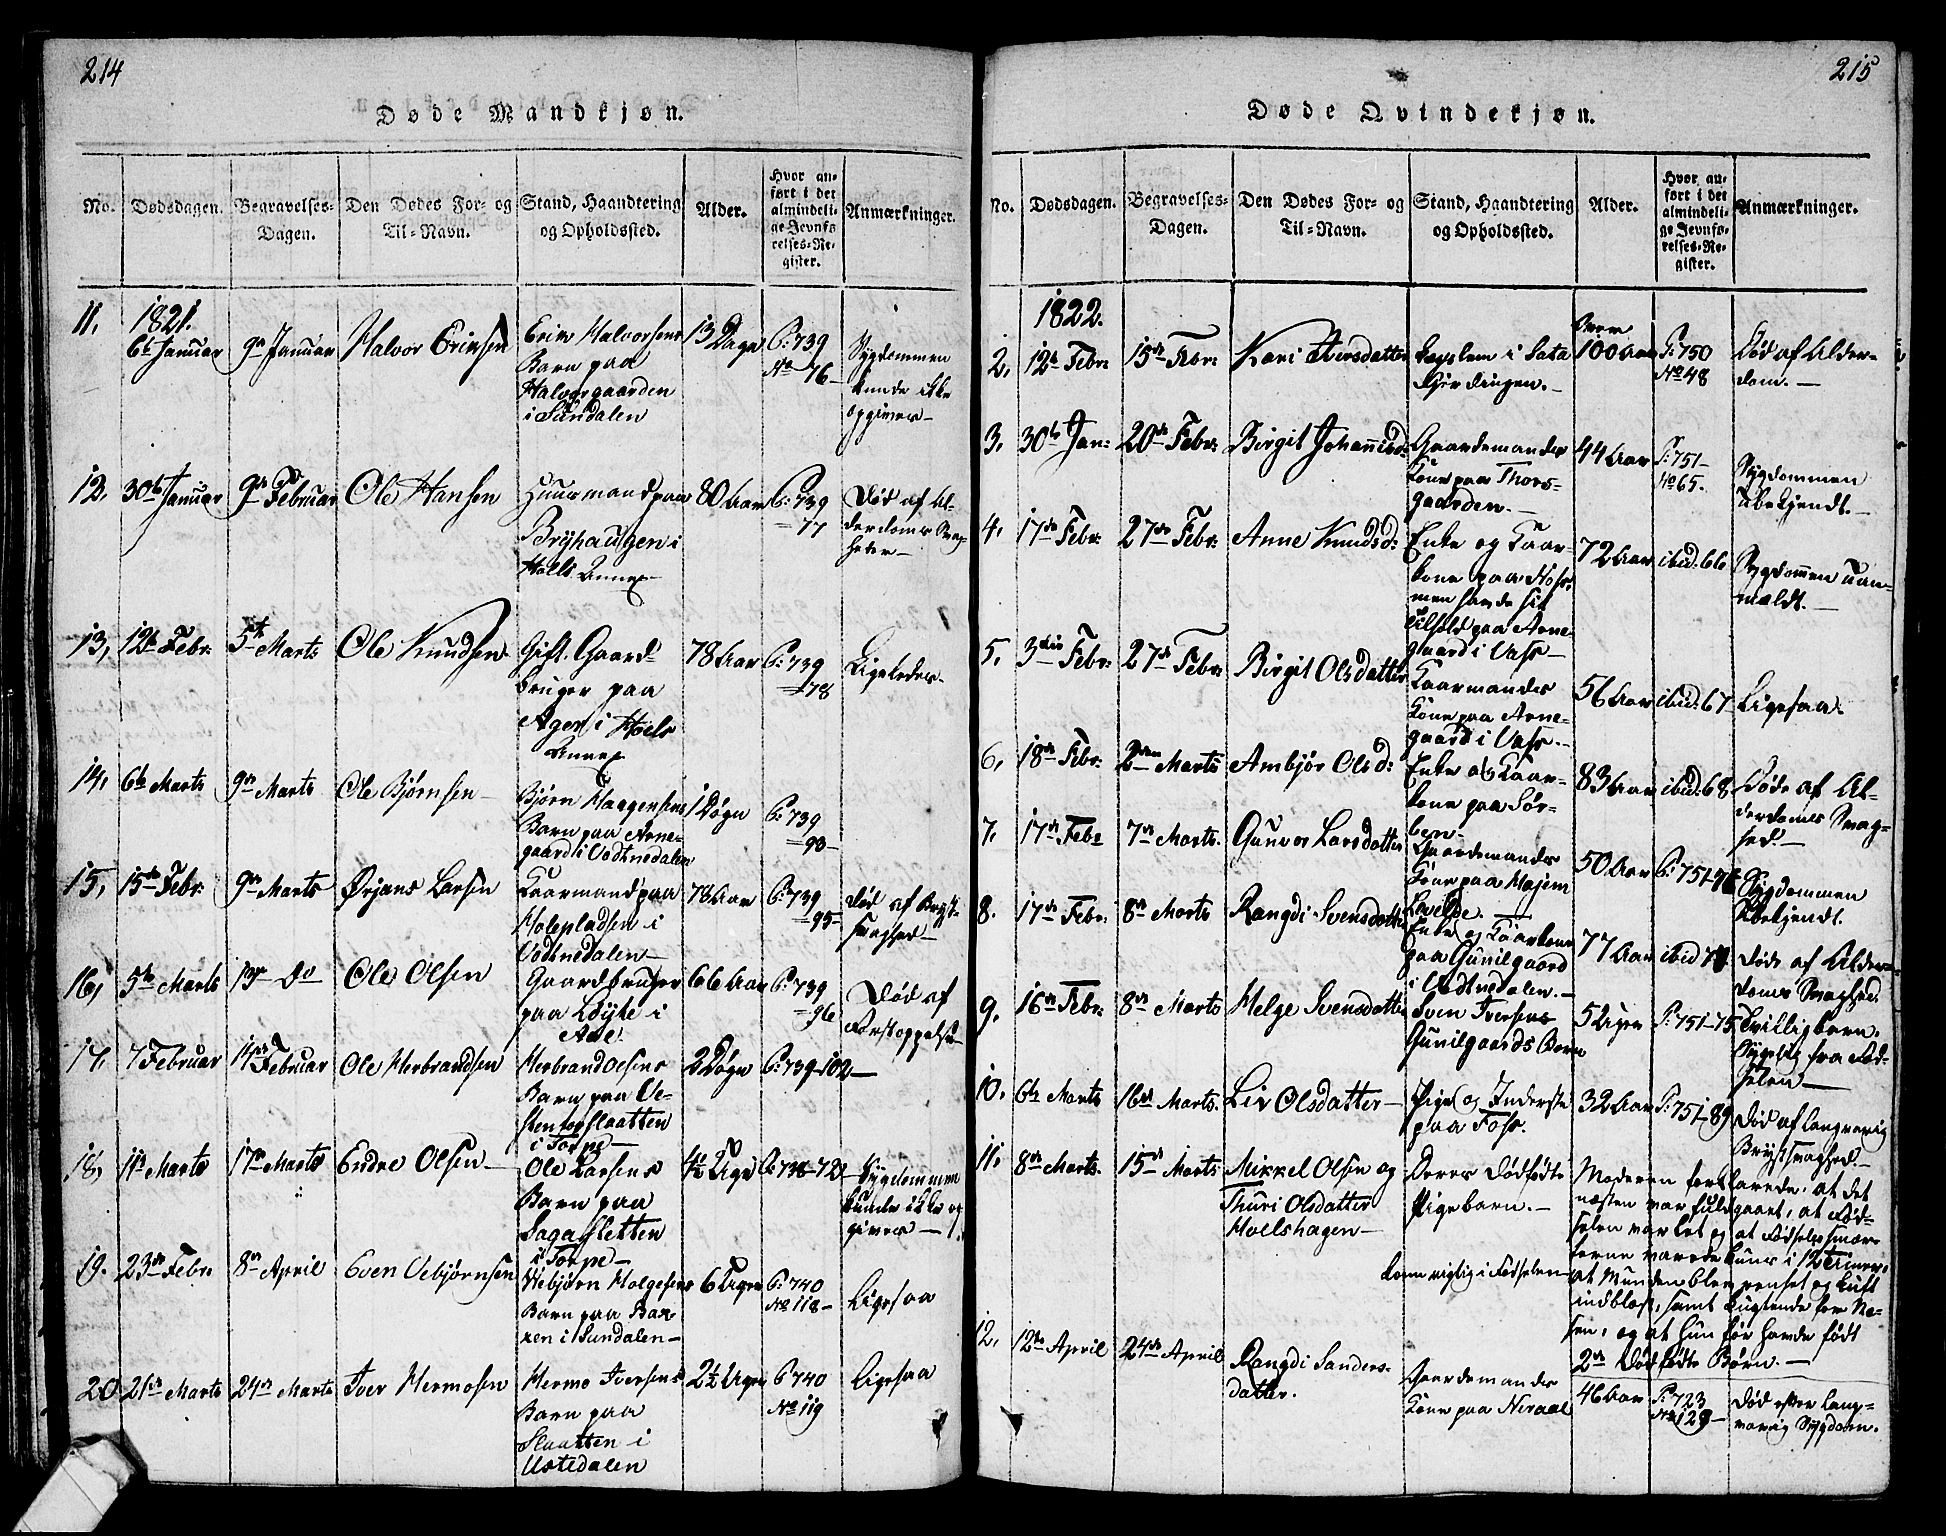 214
Døde Mandkjøn.
No.
Dødsdagen.
Begravelses-
Dagen.
Den Dødes For- og
Til-Navn.
Stand, Haandtering
og Opholdssted.
Alder.
Hvor an-
ført i det
almindeli-
ge Jevnfø-
relses-Re-
gister.
Anmærkninger.
1821.
11, 6te Januar 9de Januar Halvor Erichsen
Barn paa
Halvorgaarden
i Sundalen
13 Dage
P: 739
No 76
Sygdommen
kunde ikke
opgives
12, 30te Januar 9de Februar Ole Hansen
Huusmand paa
Bryhaugen i
Hoels Annex
80 Aar
P: 739
77
Død af Al-
derdoms Svag-
heder
13, 12te Febr: 5te Marts Ole Knudsen
Gift Gaard-
bruger paa
Ager i Hoels
Annex
78 Aar
P: 739
78
Ligeledes
14, 6te Marts 9de Marts Ole Bjørnsen
Bjørn Haagensens
Barn paa Arne-
gaard i Vodtnedalen
1 Døgn
P: 739
90
15, 15de Febr: 9de Marts Ørjans Larsen
Kaarmand paa
Holepladsen i
Vodtnedalen
78 Aar
P: 739
95
Død af Bryst-
svaghed
16, 5te Marts 13de Do Ole Olsen
Gaardbruger
paa
i Aal
66 Aar
P: 739
96
Død af
Forstoppelse
17, 7 Februar 14de Februar Ole Herbrandsen
Herbrand Olsens
Barn paa
i Torpe
2 Døgn
P: 739-102
18, 11te Marts 17de Marts Endre Olsen
Ole Larsens
Barn paa
Sagasletten
i Torpe
4½ Uge
Sygdommen
kunde ikke op
gives
19. 23de Febr: 8de April Sven Vebjørnsen
Vebjørn Holgesens
Barn paa
i Sundalen
6 Uger
P: 740
No 118
Ligesaa
20 21de Marts 24de Marts Iver Hermosen
Hermo Iversens
Barn paa
Slaatten i
Ustedalen
2½ Uger
P 740
No 119
Ligesaa
215
Døde Qvindekjøn.
No.
Dødsdagen.
Begravelses-
Dagen.
Den Dødes For- og
Til-Navn.
Stand, Haandtering
og Opholdssted.
Alder.
Hvor an-
ført i det
almindeli-
ge Jevnfø-
relses-Re-
gister.
Anmærkninger.
1822.
2, 12te Febr: 15de Febr: Kari Iversdatter
100 Aar
P: 750
No 48
Død af Alder-
dom.
3, 30te Jan: 20de Febr: Birgit Johannisd:
Gaardemandes
Kone paa Thors-
gaarden.
44 Aar
P: 751
No 65.
Sygdommen
Ubekjendt.
4, 17de Febr: 27de Febr: Anne Knudsd:
Enke og Kaar-
kone paa
men havde sit
Tilhold paa Arne-
gaard i
72 Aar
ibid: 66
Sygdommen uan-
meldt.
5, 3die Febr: 27de Febr: Birgit Olsdatter
Kaarmandes
Kone paa Arne-
gaard i
56 Aar
ibid: 67
Ligesaa.
6, 18de Febr: 2den Marts Ambjør Olsd:
Enke og Kaar-
kone paa Sør-
ben
83 Aar
ibid: 68
Døde af Al-
derdoms Svag-
hed.
7, 17de Febr 7de Marts. Gunvor Larsdatter
Gaardemandes
Kone paa
50 Aar
Sygdommen
Ubekjendt.
8. 17de Febr: 8de Marts Rangdi Svensdatter
Enke og Kaarkone
paa Gunilgaard
i Vodtnedalen.
77 Aar
Døde af Alder-
doms Svaghed.
9, 16de Febr: 8de Marts Helge Svensdatter
Sven Iversens
Gunilgaards Barn
5 Uger
P: 751-75
Tvillingbarn.
Sygelig fra Fød-
selen
10, 6te Marts 16de Marts. Liv Olsdatter
Pige og Inderste
paa Foss.
32 Aar
P: 751-89
Død af langvarig
Brystsvaghed.
11, 8de Marts 15de Marts Mikkel Olsen og
Thuri Olsdatter
Hoelshagen
Deres dødfødte
Pigebarn.
Kom rigtig i Fødselen
Moderen forklarede, at det
næsten var fuldgaaet, at Fød-
selen var let og at Fødselssmær-
terne varede kuns i 12 Timer,
at Munden blev renset og Luft
indblæst, samt Lugtende for Næ-
sen, og at hun før havde født
2de dødfødte Børn.
12, 12te April 24de April Rangdi Sanders-
datter.
Gaardemandes
Kone paa Neraal
46 Aar
P: 723
No 129
Død efter lang-
varig Sygdom.